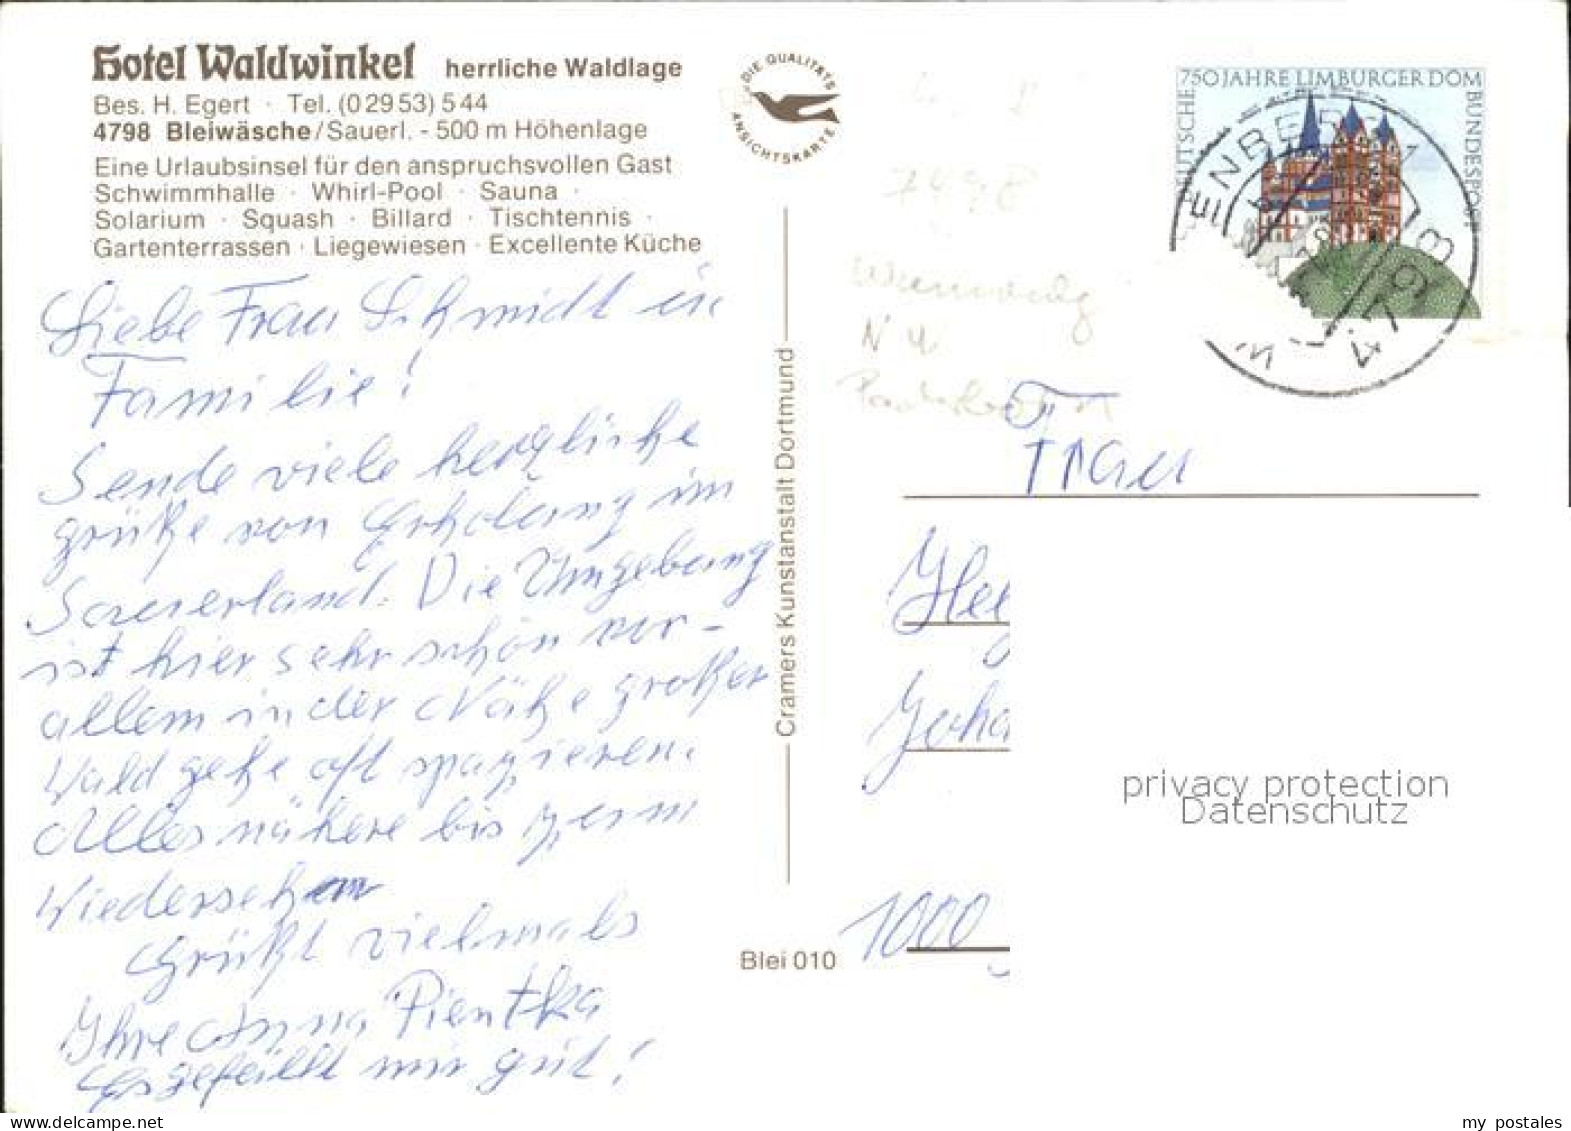 Hotel Waldwinkel herrliche Waldlage
Bes. H. Egert · Tel. (0 29 53) 5 44
4798 Bleiwäsche/Sauerl. - 500 m Höhenlage
Eine Urlaubsinsel für den anspruchsvollen Gast
Schwimmhalle · Whirl-Pool · Sauna ·
Solarium · Squash · Billard · Tischtennis ·
Gartenterrassen · Liegewiesen · Excellente Küche
Liebe Frau Schmidt
Familie!
Sende viele herzliche
grüße von Erholung im
Sauerland. Die Umgebung
ist hier sehr schön vor-
allem in der Nähe großer
Wald gehe oft spazieren.
Alles nähere bis zum
Wiedersehen
Grüßt vielmals
Ihre Anna Pientka
Es gefällt mir gut!
DIE QUALITÄTS
ANSICHTSKARTE
Cramers Kunstanstalt Dortmund
Blei 010
750 JAHRE LIMBURGER DOM
DEUTSCHE BUNDESPOST
4798
7498
N 4
Frau
1000
privacy protection
Datenschutz
my postales